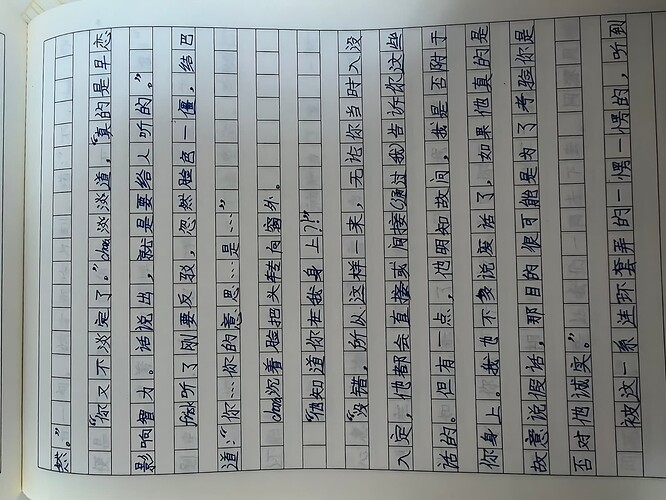 然。”
“你又不淡定了。”chaos淡淡道，“真的是早恋
影响智力。话说出，就是要给人听的。”
fresk听了刚要反驳，忽然脸色一僵，结巴
道：“你…你的意思…是…”
chaos沉着脸把头转向窗外。
“他知道你在我身上？！”
“没错，所以这样一来，无论你当时入没
入定，他都会直接或间接(通过我)告诉你这些
话的。但有一点，他明知故问，我是否附于
你身上。我也不多说废话了，如果他真的是
故意说假话，那目的很可能是为了考验你是
否对他诚实。”
被这一系连环套弄的一愣一愣的，听到